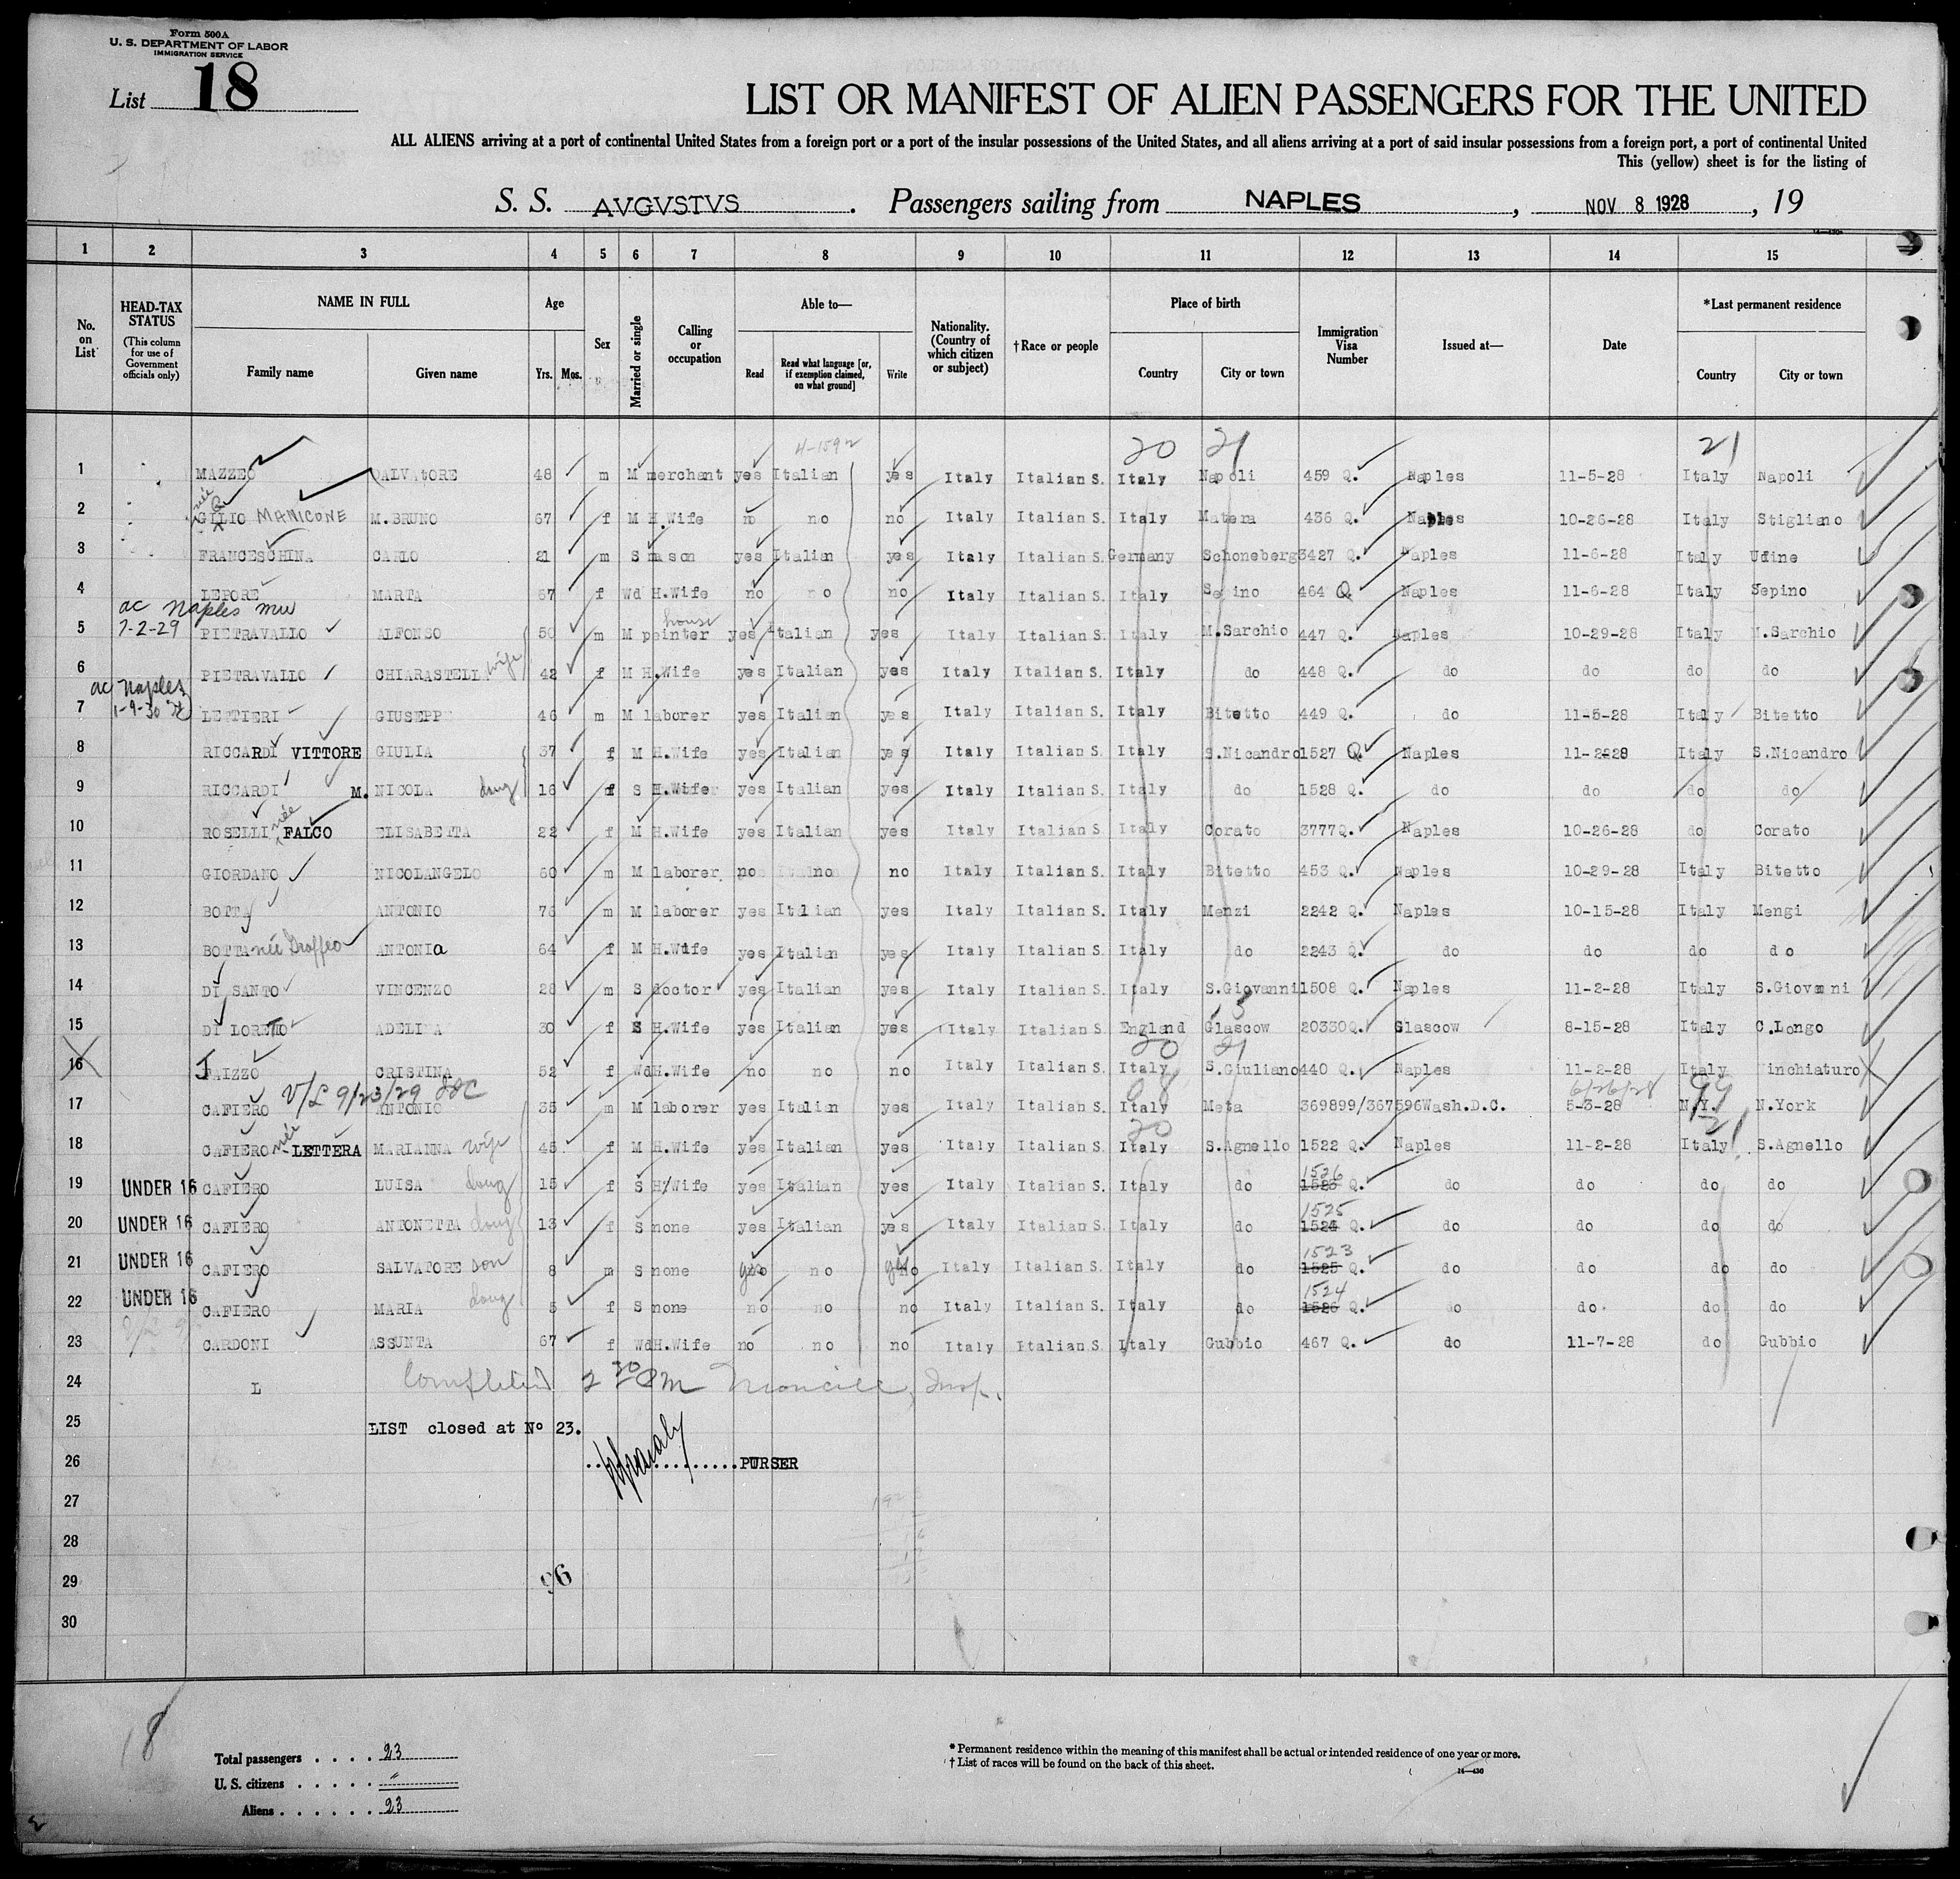 Form 500A
U. S. DEPARTMENT OF LABOR
IMMIGRATION SERVICE
List 18
LIST OR MANIFEST OF ALIEN PASSENGERS FOR THE UNITED
ALL ALIENS arriving at a port of continental United States from a foreign port or a port of the insular possessions of the United States, and all aliens arriving at a port of said insular possessions from a foreign port, a port of continental United
This (yellow) sheet is for the listing of
S. S. AVGVSTVS. Passengers sailing from NAPLES, NOV 8 1928, 19
1 2 3 4 5 6 7 8 9 10 11 12 13 14 15
No. on List
HEAD-TAX STATUS
(This column for use of Government officials only)
NAME IN FULL
Family name Given name
Age
Yrs. Mos.
Sex
Married or single
Calling or occupation
Able to—
Read
Read what language [or, if exemption claimed, on what ground]
Write
Nationality. (Country of which citizen or subject)
†Race or people
Place of birth
Country City or town
Immigration Visa Number
Issued at—
Date
*Last permanent residence
Country City or town
4-1592 20 21 21
1 MAZZEO SALVATORE 48 m M merchant yes Italian yes Italy Italian S. Italy Napoli 459 Q. Naples 11-5-28 Italy Napoli
née
2 GILIO MANICONE M.BRUNO 67 f M H.Wife no no no Italy Italian S. Italy Matera 436 Q. Naples 10-26-28 Italy Stigliano
3 FRANCESCHINA CARLO 21 m S mason yes Italian yes Italy Italian S. Germany Schoneberg 3427 Q. Naples 11-6-28 Italy Udine
4 LEPORE MARTA 57 f Wd H.Wife no no no Italy Italian S. Italy Sepino 464 Q Naples 11-6-28 Italy Sepino
ac Naples mw
house
5 7-2-29 PIETRAVALLO ALFONSO 50 m M painter yes Italian yes Italy Italian S. Italy M.Sarchio 447 Q. Naples 10-29-28 Italy M.Sarchio
6 PIETRAVALLO CHIARASTELLA wife 42 f M H.Wife yes Italian yes Italy Italian S. Italy do 448 Q. do do do do
ac Naples
7 1-9-30 LETTIERI GIUSEPPE 46 m M laborer yes Italian yes Italy Italian S. Italy Bitetto 449 Q. do 11-5-28 Italy Bitetto
8 RICCARDI VITTORE GIULIA 37 f M H.Wife yes Italian yes Italy Italian S. Italy S.Nicandro 1527 Q. Naples 11-2-28 Italy S.Nicandro
9 RICCARDI M. NICOLA daug 16 f S H.Wife yes Italian yes Italy Italian S. Italy do 1528 Q. do do do do
née
10 ROSELLI FALCO ELISABETTA 22 f M H.Wife yes Italian yes Italy Italian S. Italy Corato 3777 Q. Naples 10-26-28 do Corato
11 GIORDANO NICOLANGELO 60 m M laborer no no no Italy Italian S. Italy Bitetto 453 Q. Naples 10-29-28 Italy Bitetto
12 BOTTA ANTONIO 76 m M laborer yes Italian yes Italy Italian S. Italy Menzi 2242 Q. Naples 10-15-28 Italy Mengi
13 BOTTA née Graffeo ANTONIa 64 f M H.Wife yes Italian yes Italy Italian S. Italy do 2243 Q. do do do do
14 DI SANTO VINCENZO 28 m S doctor yes Italian yes Italy Italian S. Italy S.Giovanni 1508 Q. Naples 11-2-28 Italy S.Giovanni
15 DI LORETO ADELINA 30 f S H.Wife yes Italian yes Italy Italian S. England Glascow 20330Q. Glascow 8-15-28 Italy C.Longo
20 21
16 JAIZZO CRISTINA 52 f Wd H.Wife no no no Italy Italian S. Italy S.Giuliano 440 Q. Naples 11-2-28 Italy inchiaturo
V/L 9/23/29 6/26/28 99
17 CAFIERO ANTONIO 35 m M laborer yes Italian yes Italy Italian S. Italy Meta 369899/367596 Wash.D.C. 5-3-28 N.Y. N.York
née 20 21
18 CAFIERO LETTERA MARIANNA wife 45 f M H.Wife yes Italian yes Italy Italian S. Italy S.Agnello 1522 Q. Naples 11-2-28 Italy S.Agnello
1526
19 UNDER 16 CAFIERO LUISA daug 15 f S H/Wife yes Italian yes Italy Italian S. Italy do 1523 Q. do do do do
1525
20 UNDER 16 CAFIERO ANTONETTA daug 13 f S none yes Italian yes Italy Italian S. Italy do 1524 Q. do do do do
1523
21 UNDER 16 CAFIERO SALVATORE son 8 m S none yes no yes Italy Italian S. Italy do 1525 Q. do do do do
1524
22 UNDER 16 CAFIERO MARIA daug 5 f S none no no no Italy Italian S. Italy do 1526 Q. do do do do
23 CARDONI ASSUNTA 67 f Wd H.Wife no no no Italy Italian S. Italy Gubbio 467 Q. do 11-7-28 do Gubbio
24 L Completed 2 30 PM Insp.
25 LIST closed at No 23.
26 PURSER
27
28
29 96
30
18
Total passengers . . . . . 23
U. S. citizens . . . . . "
Aliens . . . . . . 23
* Permanent residence within the meaning of this manifest shall be actual or intended residence of one year or more.
† List of races will be found on the back of this sheet.
14—430